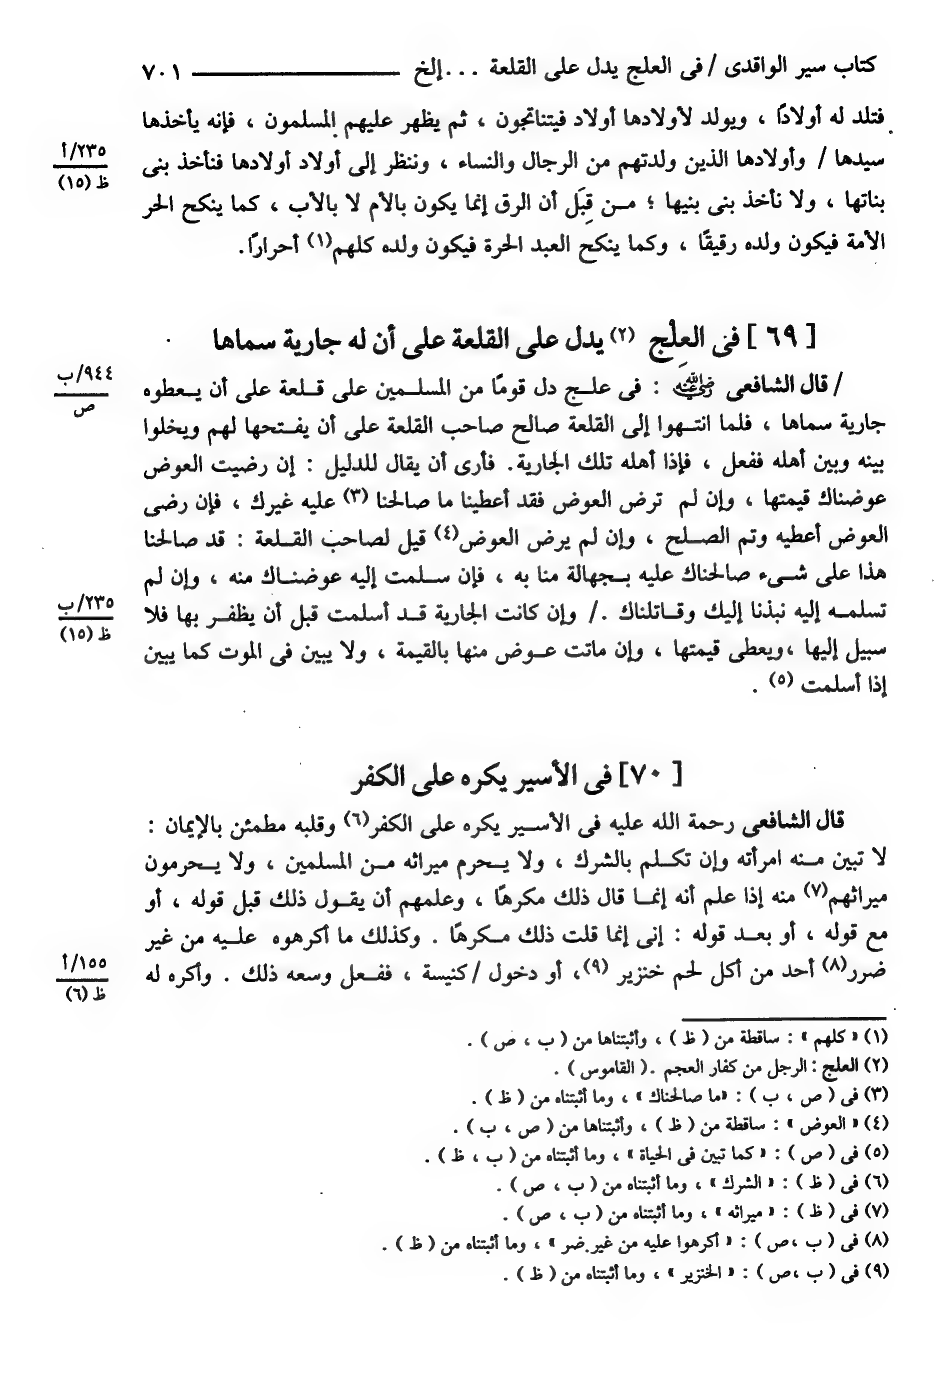 كتاب سير الواقدى / فى العلج يدل على القلعة ... إلخ ــــــــــــــــ ٧٠١
فتلد له أولادًا ، ويولد لأولادها أولاد فيتناتجون ، ثم يظهر عليهم المسلمون ، فإنه يأخذها
سيدها / وأولادها الذين ولدتهم من الرجال والنساء ، وننظر إلى أولاد أولادها فنأخذ بنى
٢٣٥/أ
ظ (١٥)
بناتها ، ولا نأخذ بنى بنيها ؛ مـن قِبَل أن الرق إنما يكون بالأم لا بالأب ، كما ينكح الحر
الأمة فيكون ولده رقيقًا ، وكما ينكح العبد الحرة فيكون ولده كلهم(١) أحرارًا.
[ ٦٩ ] فى العِلْج (٢) يدل على القلعة على أن له جارية سماها
/ قال الشافعى رضي الله عنه : فى علـج دل قومًا من المسلـمين على قـلعة على أن يـعطوه
٩٤٤/ب
ص
جارية سماها ، فلما انتـهوا إلى القلعة صالح صاحب القلعة على أن يفـتحها لهم ويخلوا
بينه وبين أهله ففعل ، فإذا أهله تلك الجارية. فأرى أن يقال للدليل : إن رضيت العوض
عوضناك قيمتها ، وإن لم ترض العوض فقد أعطينا ما صالحنا (٣) عليه غيرك ، فإن رضى
العوض أعطيه وتم الصـلح ، وإن لم يرض العوض(٤) قيل لصاحب القـلعة : قد صالحنا
هذا على شـىء صالحناك عليه بـجهالة منا به ، فإن سـلمت إليه عوضنـاك منه ، وإن لم
تسلمـه إليه نبذنا إليك وقـاتلناك ./ وإن كانت الجارية قـد أسلمت قبل أن يظفـر بها فلا
٢٣٥/ب
ظ (١٥)
سبيل إليها ،ويعطى قيمتها ، وإن ماتت عـوض منها بالقيمة ، ولا يبين فى الموت كما يبين
إذا أسلمت (٥) .
[ ٧٠] فى الأسير يكره على الكفر
قال الشافعى رحمة الله عليه فى الأسـير يكره على الكفر(٦) وقلبه مطمئن بالإيمان :
لا تبين مـنه امرأته وإن تكـلم بالشرك ، ولا يـحرم ميراثه مـن المسلمين ، ولا يـحرمون
ميراثهم(٧) منه إذا علم أنه إنمـا قال ذلك مكرهًا ، وعلمهم أن يقـول ذلك قبل قوله ، أو
مع قوله ، أو بعـد قوله : إنى إنما قلت ذلك مـكرهًا . وكذلك ما أكرهوه علـيه من غير
ضرر(٨) أحد من أكل لحم خنزير (٩)، أو دخول / كنيسة ، ففـعل وسعه ذلك . وأكره له
١٥٥/أ
ظ (٦)
(١) « كلهم » : ساقطة من ( ظ ) ، وأثبتناها من ( ب ، ص ) .
(٢) العلج : الرجل من كفار العجم .( القاموس ) .
(٣) فى ( ص ، ب ) : «ما صالحناك » ، وما أثبتناه من ( ظ ) .
(٤) « العوض » : ساقطة من ( ظ ) ، وأثبتناها من ( ص ، ب ) .
(٥) فى ( ص ) : « كما تبين فى الحياة » ، وما أثبتناه من ( ب ، ظ ) .
(٦) فى ( ظ ) : « الشرك » ، وما أثبتناه من ( ب ، ص ) .
(٧) فى ( ظ ) : « ميراثه » ، وما أثبتناه من ( ب ، ص ) .
(٨) فى ( ب ،ص ) : « أكرهوا عليه من غير ضر » ، وما أثبتناه من ( ظ ) .
(٩) فى ( ب ،ص ) : « الخنزير » ، وما أثبتناه من ( ظ ) .